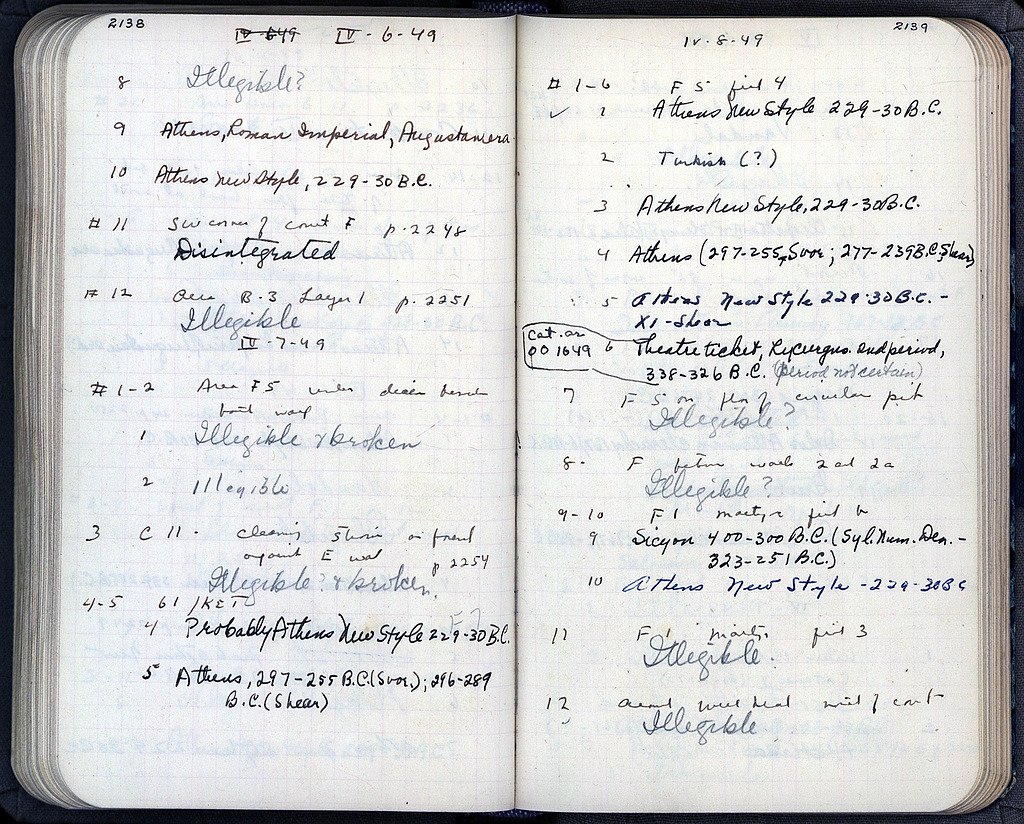 2138
IV-649 IV-6-49
8 Illegible?
9 Athens, Roman Imperial, Augustan era
10 Athens New Style, 229-30 B.C.
# 11 SW corner of court F p. 2248
Disintegrated
# 12 Area B-3 Layer 1 p. 2251
Illegible
IV-7-49
# 1-2 Area F5 under
wall
1 Illegible & broken
2 Illegible
3 C 11. cleaning
against E wall p 2254
Illegible? & broken.
4-5 61/KET
4 Probably Athens New Style 229-30 B.C.
5 Athens, 297-255 B.C. (Svor.); 296-289
B.C. (Shear)
2139
IV-8-49
# 1-6 F 5 pit 4
Athens New Style 229-30 B.C.
2 Turkish (?)
3 Athens New Style, 229-30 B.C.
4 Athens (297-255, Svor; 277-239 B.C., Shear)
5 Athens New Style 229-30 B.C. -
XI - Shear
Cat. as
00 1649
6 Theatre ticket, Lycurgus. 2nd period,
338-326 B.C. (period not certain)
7 F 5 on flr of circular pit
Illegible?
8- F walls 2 and 2a
Illegible?
9-10 F 1 pit
9 Sicyon 400-300 B.C. (Syl. Num. Den. -
323-251 B.C.)
10 Athens New Style - 229-30 B C
11 F 1 pit 3
Illegible
12 around of court
Illegible